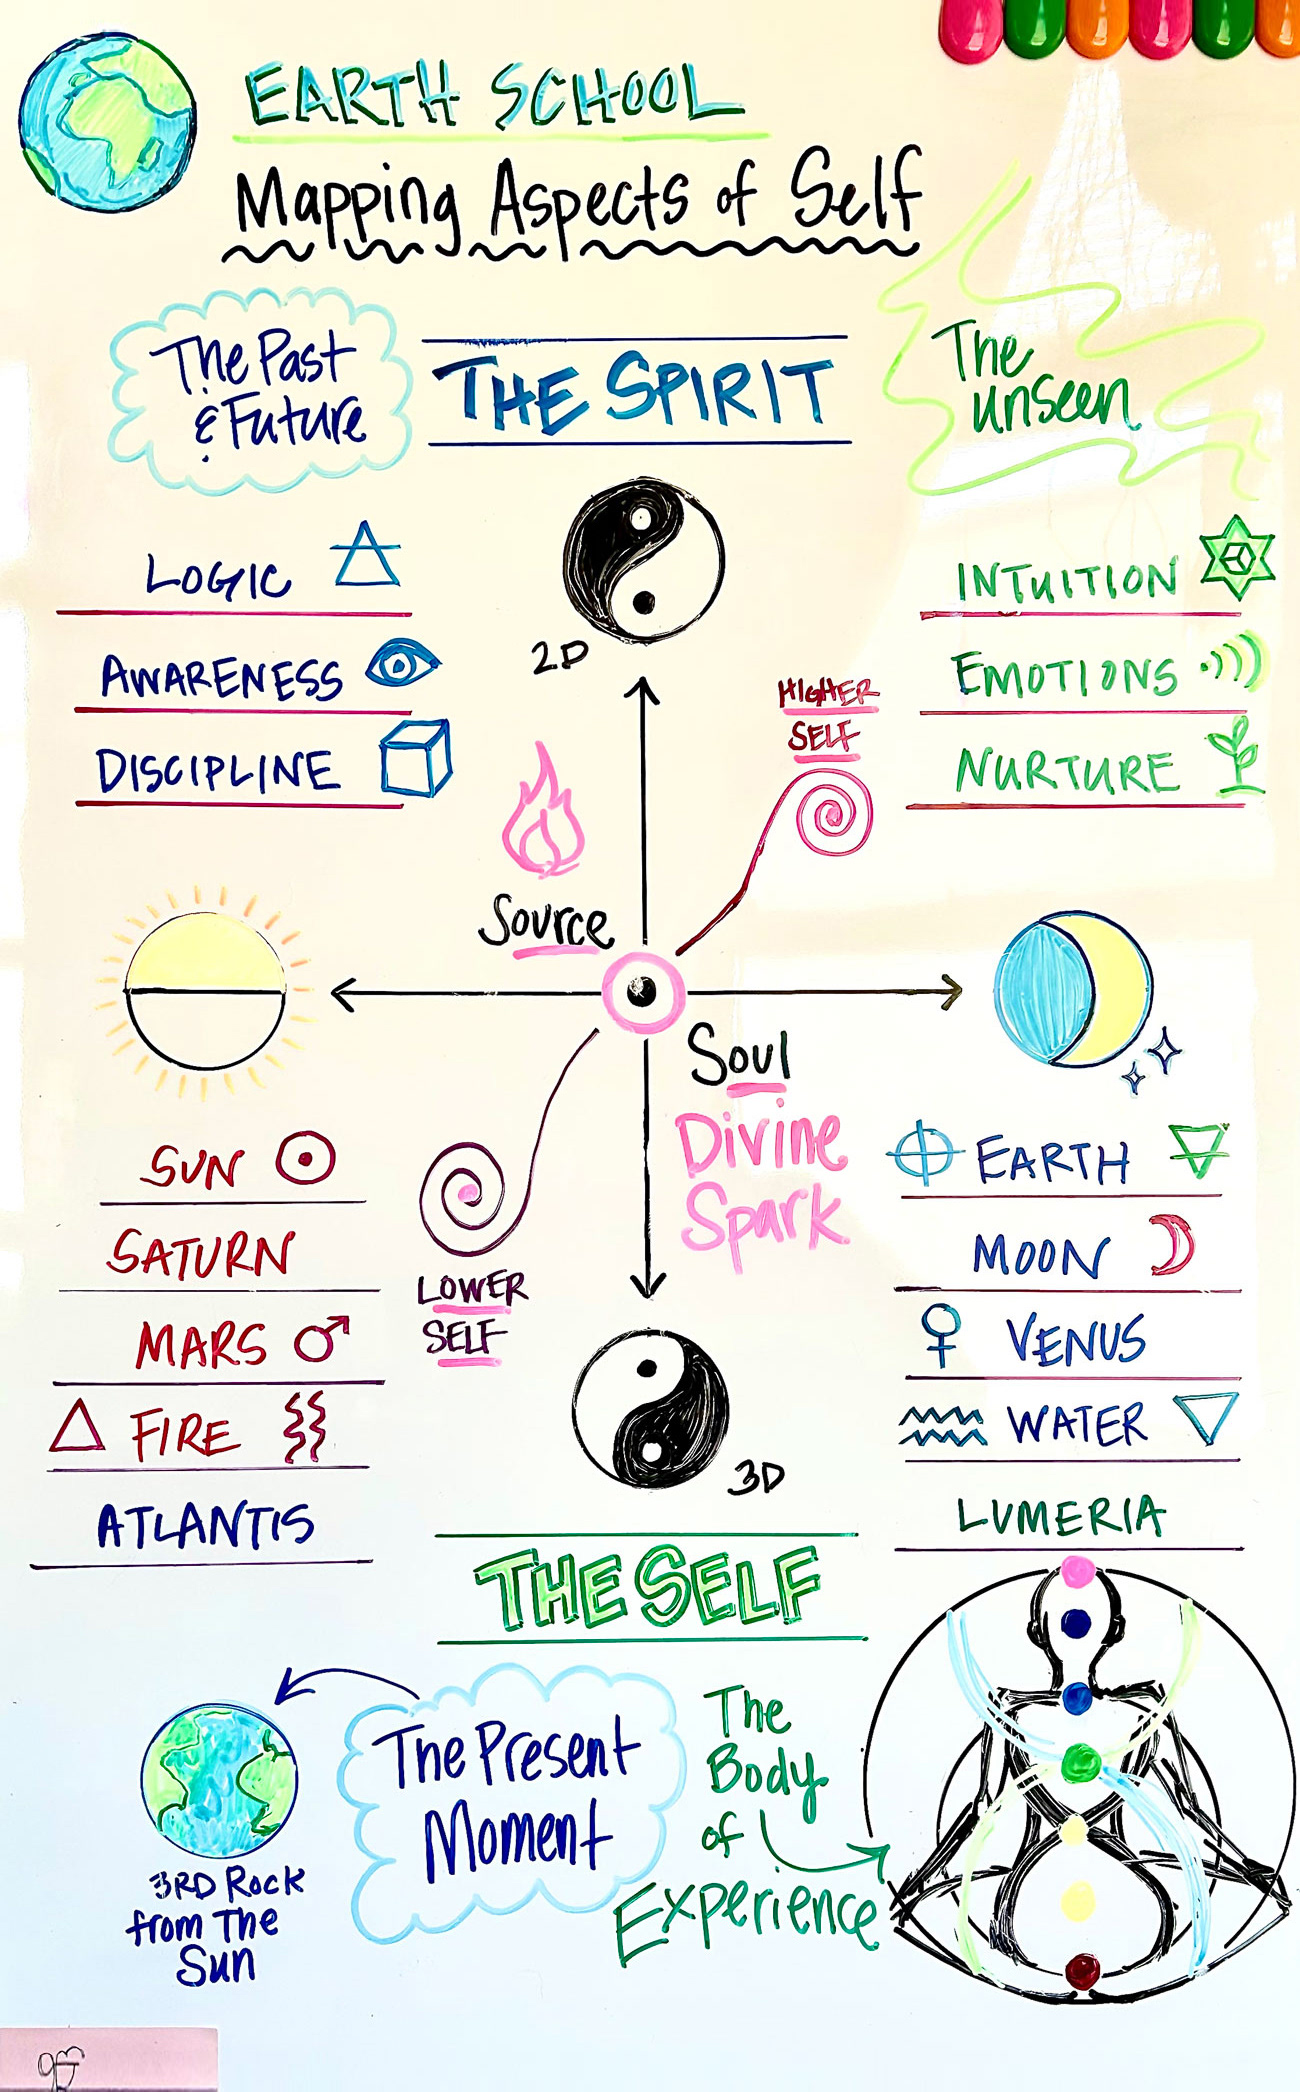 EARTH SCHOOL
Mapping Aspects of Self
The Past
& Future
THE SPIRIT
The
unseen
LOGIC
AWARENESS
DISCIPLINE
2D
INTUITION
EMOTIONS
NURTURE
HIGHER
SELF
Source
Soul
Divine
Spark
LOWER
SELF
SUN
SATURN
MARS
FIRE
ATLANTIS
EARTH
MOON
VENUS
WATER
LUMERIA
3D
THE SELF
The Present
Moment
The
Body
of
Experience
3RD Rock
from The
Sun